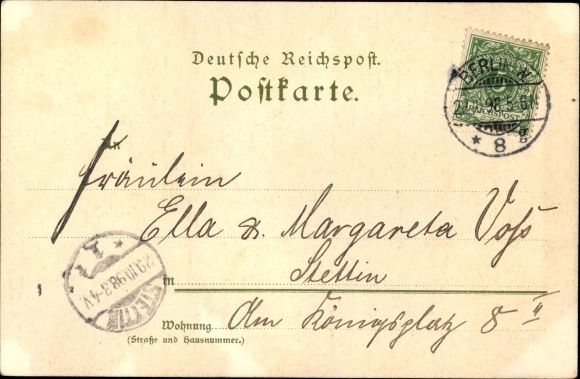 Deutsche Reichspost.
Postkarte.
BERLIN N.
98. 5-6N.
* 8 g
An
Fräulein
Ella & Margareta Voß
in Stettin
STETTIN
29.10.98. 3-4V.
* 1 *
Wohnung Am Königsplatz 8 II
(Straße und Hausnummer.)